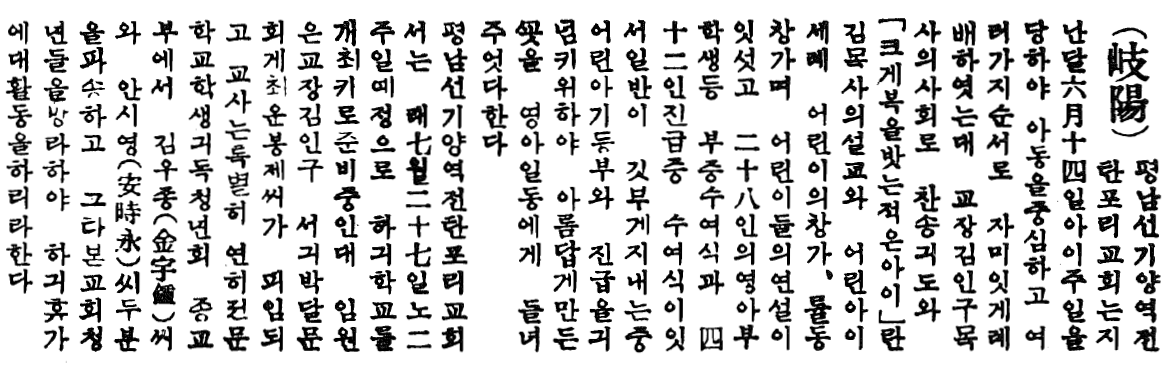 (岐陽) 평남선기양역전
탄포리교회는지
난달六月十四일아이주일을
당하야 아동을중심하고 여
러가지순서로 자미잇게례
배하엿는대 교장김인구목
사의사회로 찬송긔도와
「크게복을밧는적은아이」란
김목사의설교와 어린아이
세례 어린이의창가、률동
창가며 어린이들의연설이
잇섯고 二十八인의영아부
학생등 부증수여식과 四
十二인진급증 수여식이잇
서일반이 깃부게지내는중
어린아기등부와 진급을긔
념키위하야 아름답게만든
꼿을 영아일동에게 들녀
주엇다한다
평남선기양역전탄포리교회
서는 래七월二十七일노二
주일예정으로 하긔학교를
개최키로준비중인대 임원
은교장김인구 서긔박달문
회게최운봉제씨가 피임되
고 교사는특별히 연히전문
학교학생긔독청년회 종교
부에서 김우종(金宇鍾)씨
와 안시영(安時永)씨두분
을파송하고 그타본교회청
년들을망라하야 하긔휴가
에대활동을하리라한다